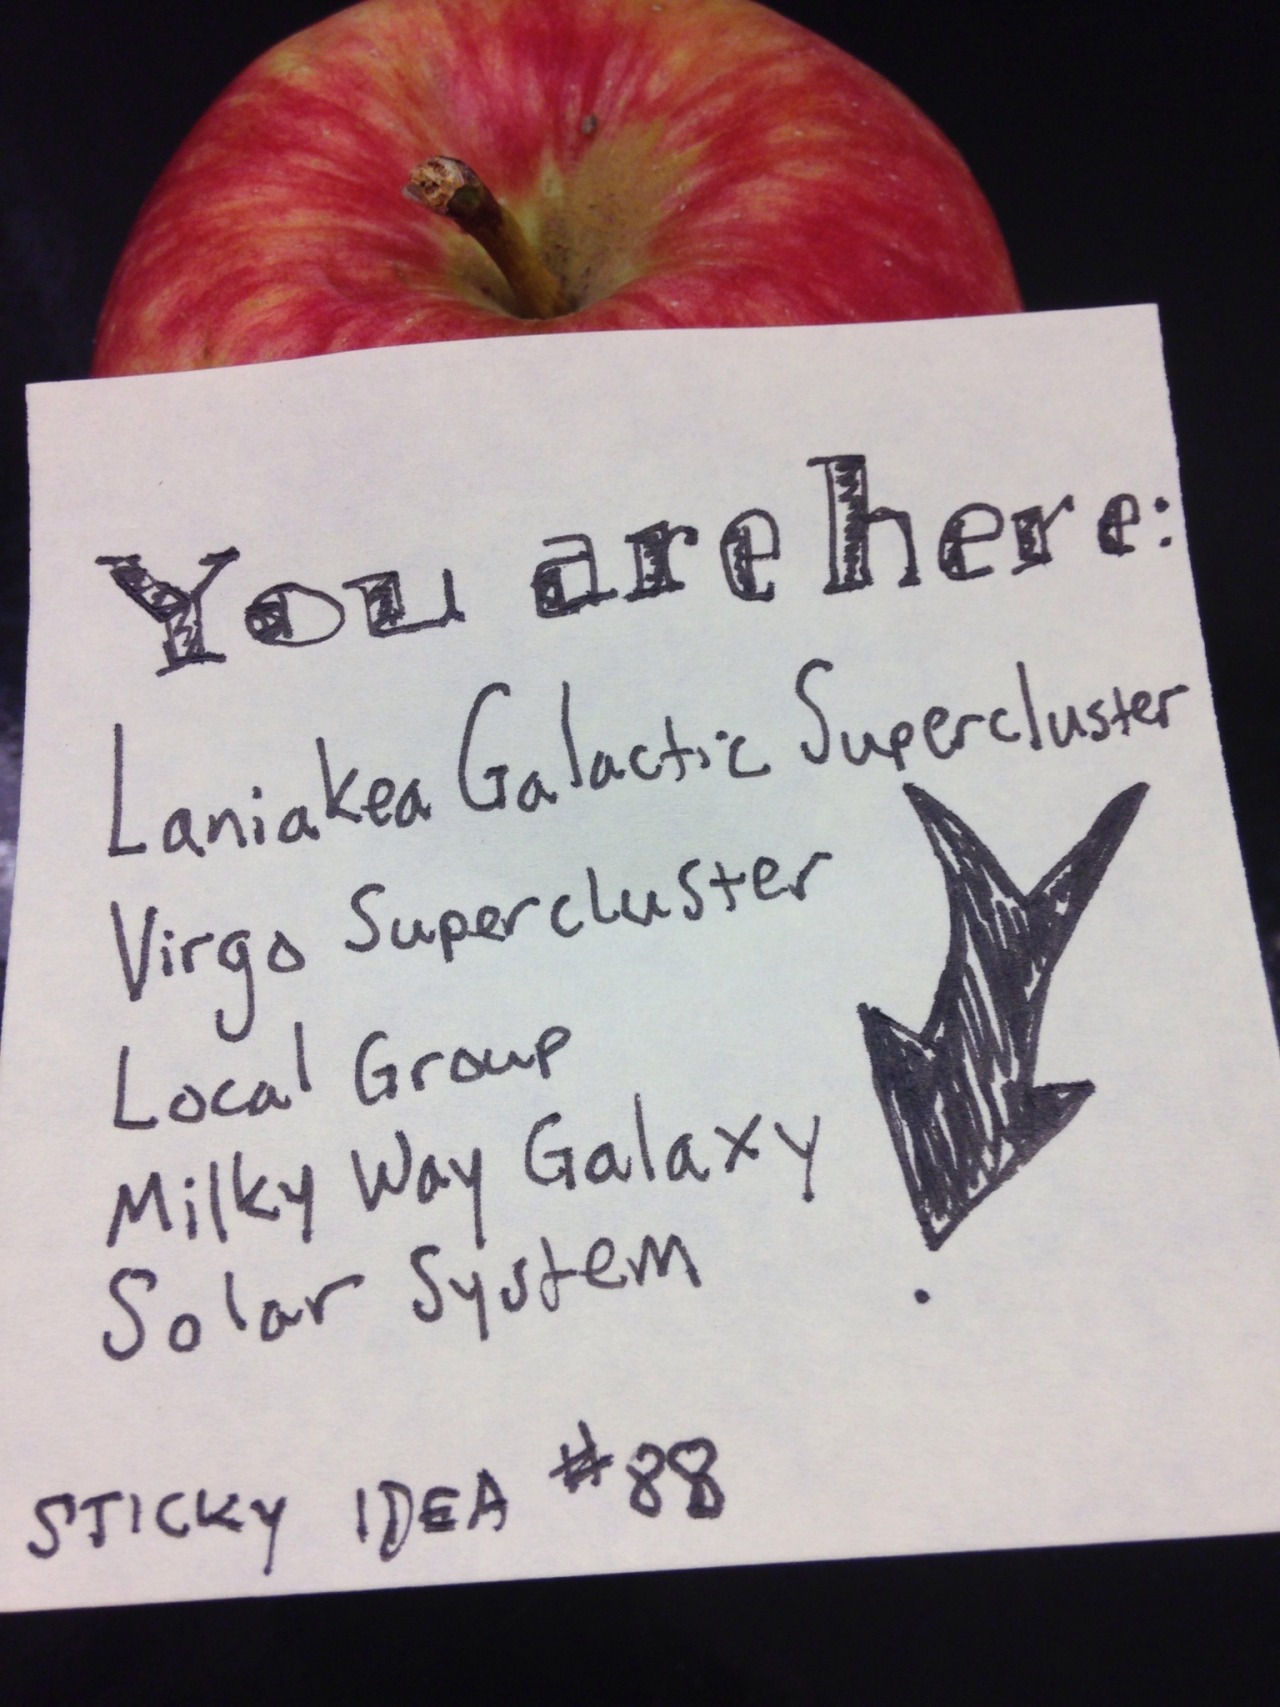 You are here:
Laniakea Galactic Supercluster
Virgo Supercluster
Local Group
Milky Way Galaxy
Solar System
STICKY IDEA #88